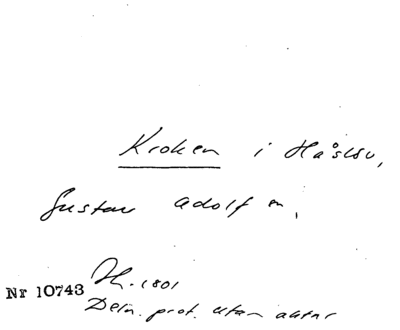 Kroken i Håslöv,
Gustav Adolf sn,
Nr 10743 Ht. 1801
Dein. prot. utan aktnr